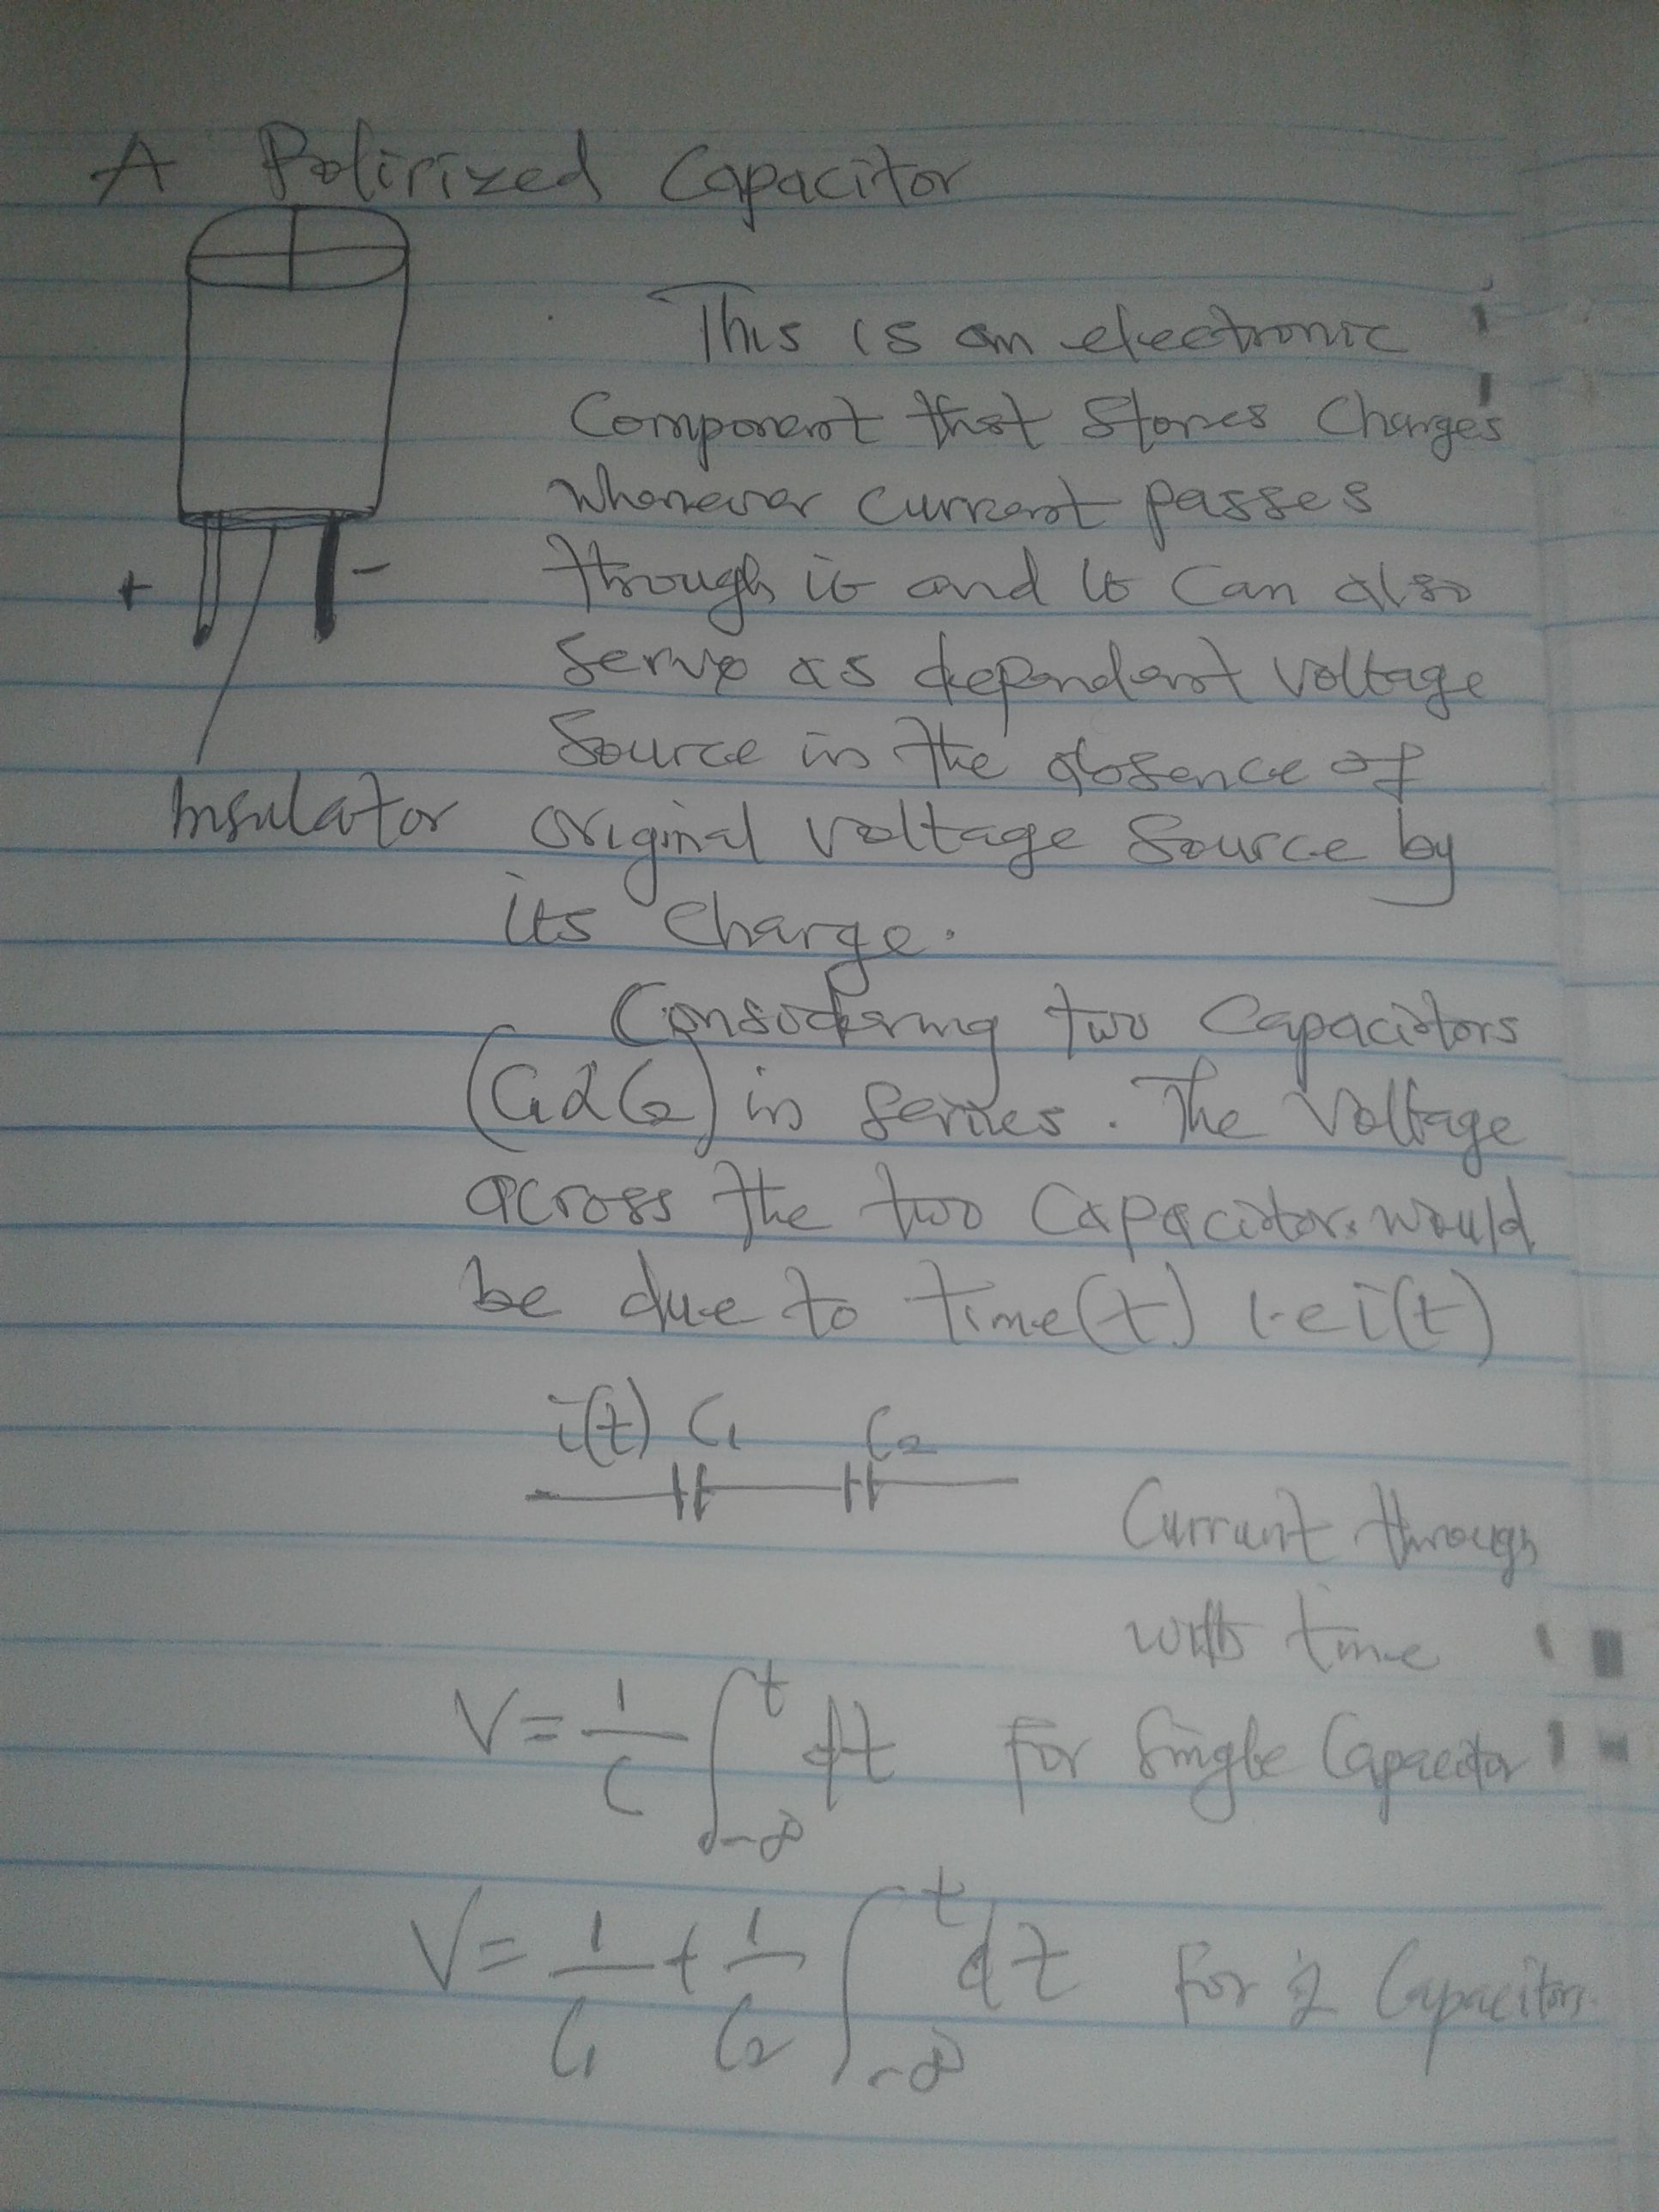 A Polirized Capacitor
This is an electronic
Component that Stores Charges
Whenever current passes
through it and it Can also
+ -
Serve as dependent voltage
Source in the absence of
Insulator
original voltage Source by
its charge.
Considering two Capacitors
(C1 & C2) in series. The Voltage
across the two Capacitors would
be due to time(t) i.e i(t)
i(t) C1 C2
Current through
with time
V = 1/C ∫_{-∞}^{t} dt For Single Capacitor
V = 1/C1 + 1/C2 ∫_{-∞}^{t} dt For 2 Capacitors.